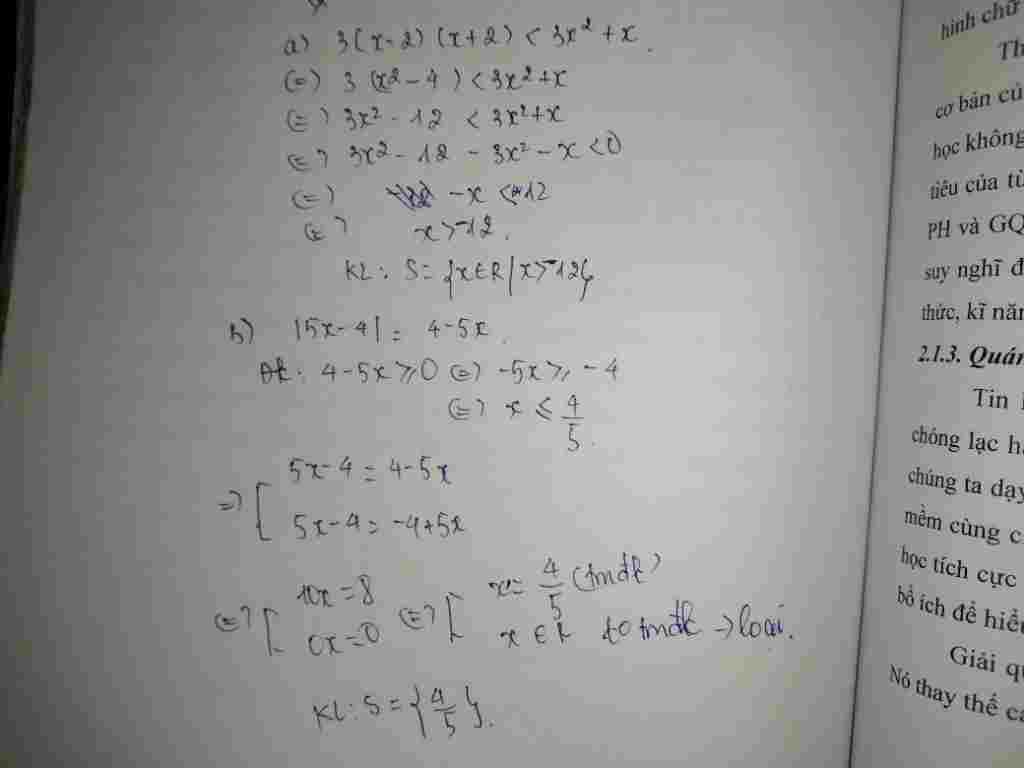 a) 3(x-2)(x+2) < 3x² + x.
(=) 3(x²-4) < 3x²+x
(=) 3x² - 12 < 3x²+x
(=) 3x² - 12 - 3x² - x < 0
(=) -x < 12
(=) x > -12.
KL: S = {x ∈ R | x > -12}
b) |5x-4| = 4-5x.
ĐK: 4-5x ≥ 0 (=) -5x ≥ -4
(=) x ≤ 4/5.
=) [ 5x-4 = 4-5x
5x-4 = -4+5x
(=) [ 10x = 8 (=) [ x = 4/5 (tmđk)
0x = 0 x ∈ R tmđk → loại.
KL: S = {4/5}.
hình chữ
Th
cơ bản củ
học không
tiêu của từ
PH và GQ
suy nghĩ đ
thức, kĩ năn
2.1.3. Quán
Tin
chóng lạc h
chúng ta dạy
mềm cùng c
học tích cực
bổ ích để hiểu
Giải qu
Nó thay thế c